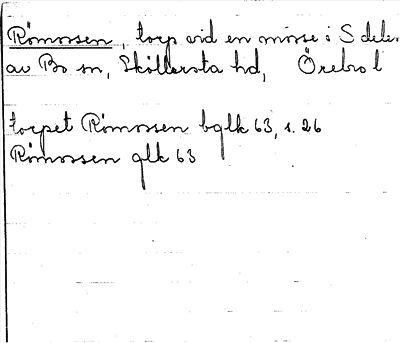 Römossen, torp vid en mosse i S delen
av Bo sn, Sköllersta hd, Örebro l
torpet Römossen bglk 63, s. 26
Römossen glk 63